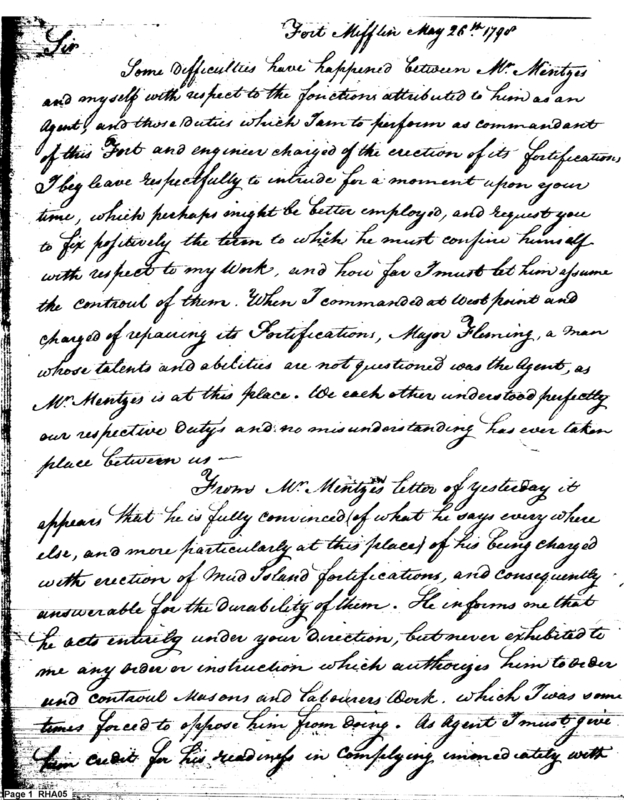 Fort Mifflin May 26th 1798
Sir
Some difficulties have happened between Mr. Mentges
and myself with respect to the fonctions attributed to him as an
Agent, and those duties which I am to perform as commandant
of this Fort and engineer charged of the erection of its fortifications
I beg leave respectfully to intrude for a moment upon your
time, which perhaps might be better employed, and request you
to fix positively the term to which he must confine himself
with respect to my Work, and how far I must let him assume
the controul of them. When I commanded at West point and
charged of repairing its Fortifications, Major Fleming, a man
whose talents and abilities are not questioned was the Agent, as
Mr. Mentges is at this place. We each other understood perfectly
our respective Duty's and no misunderstanding has ever taken
place between us —
From Mr. Mentges letter of yesterday it
appears that he is fully convinced (of what he says every where
else, and more particularly at this place) of his being charged
with erection of Mud Island fortifications, and consequently
answerable for the durability of them. He informs me that
he acts entirely under your direction, but never exhibited to
me any order or instruction which authorizes him to order
and controul Masons and labourers Work. which I was some
times forced to oppose him from doing. As Agent I must give
him credit for his readiness in complying immediately with
Page 1 RHA05